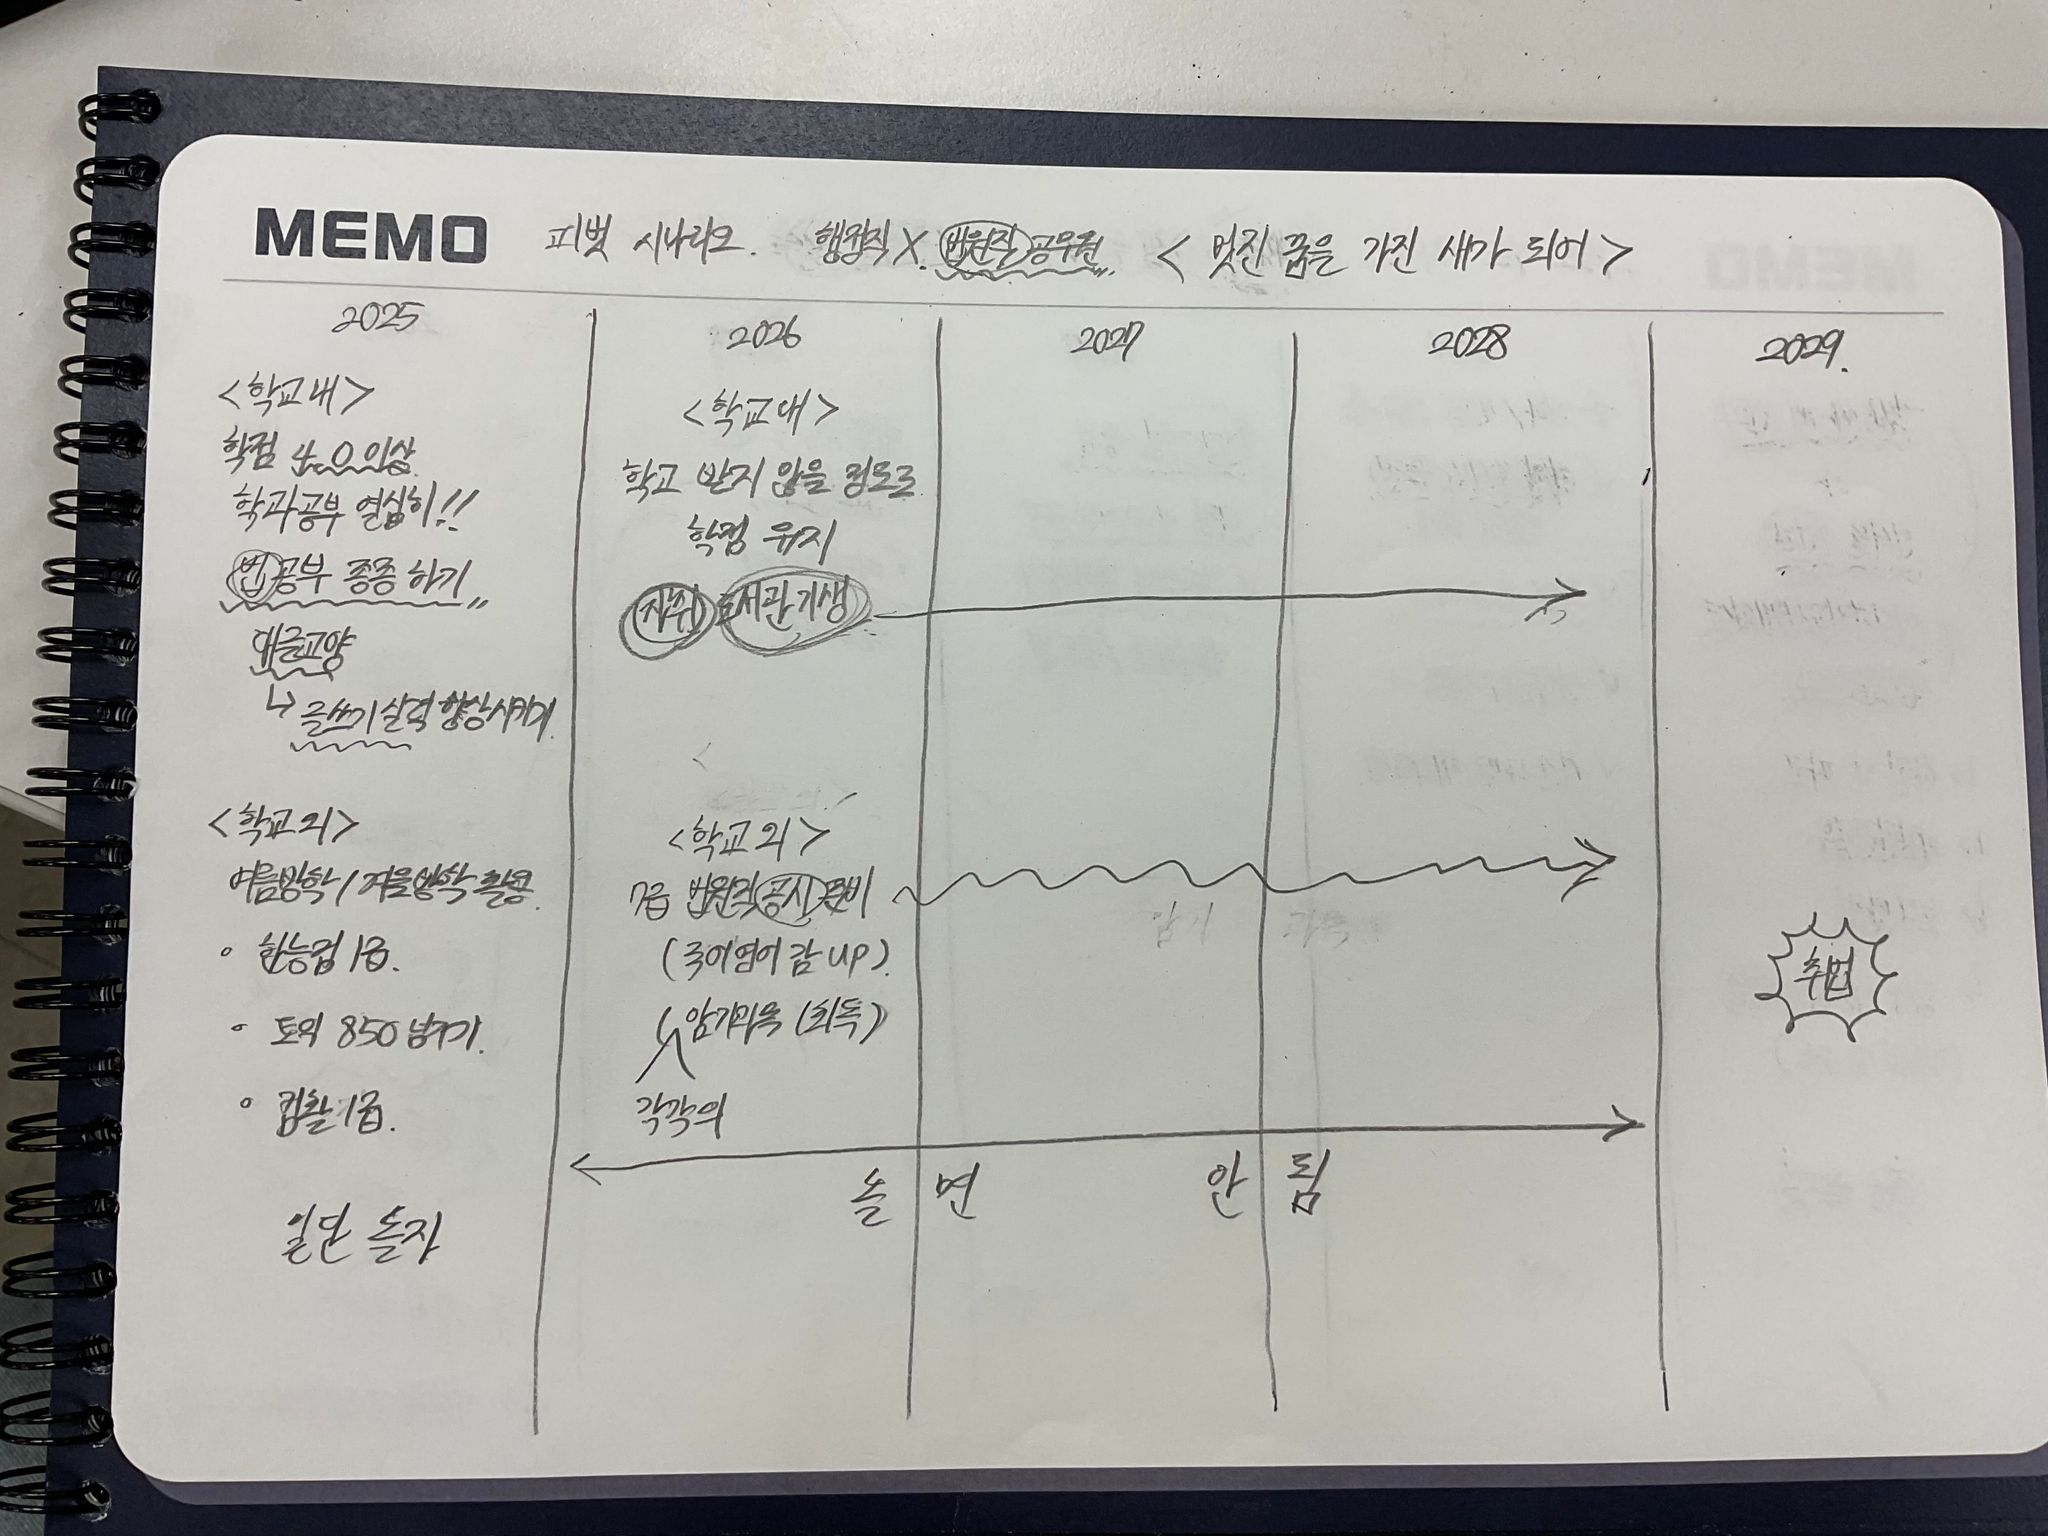 MEMO 피벗 시나리오. 행정직 X. 법원직 공무원 < 멋진 꿈을 가진 새가 되어 >
2025
<학교 내>
학점 4.0 이상
학과공부 열심히!!
법공부 종종 하기
댓글교양
↳ 글쓰기 실력 향상시키기
<학교 외>
여름방학/겨울방학 활용.
◦ 한능검 1급.
◦ 토익 850 넘기기.
◦ 컴활 1급.
일단 놀자
2026
<학교 내>
학고 받지 않을 정도로
학점 유지
자취 도서관기생
<학교 외>
7급 법원직 공시 준비
(국어영어 감 up)
(암기과목 (회독)
각각의
2027
2028
놀면 안 됨
2029.
취업